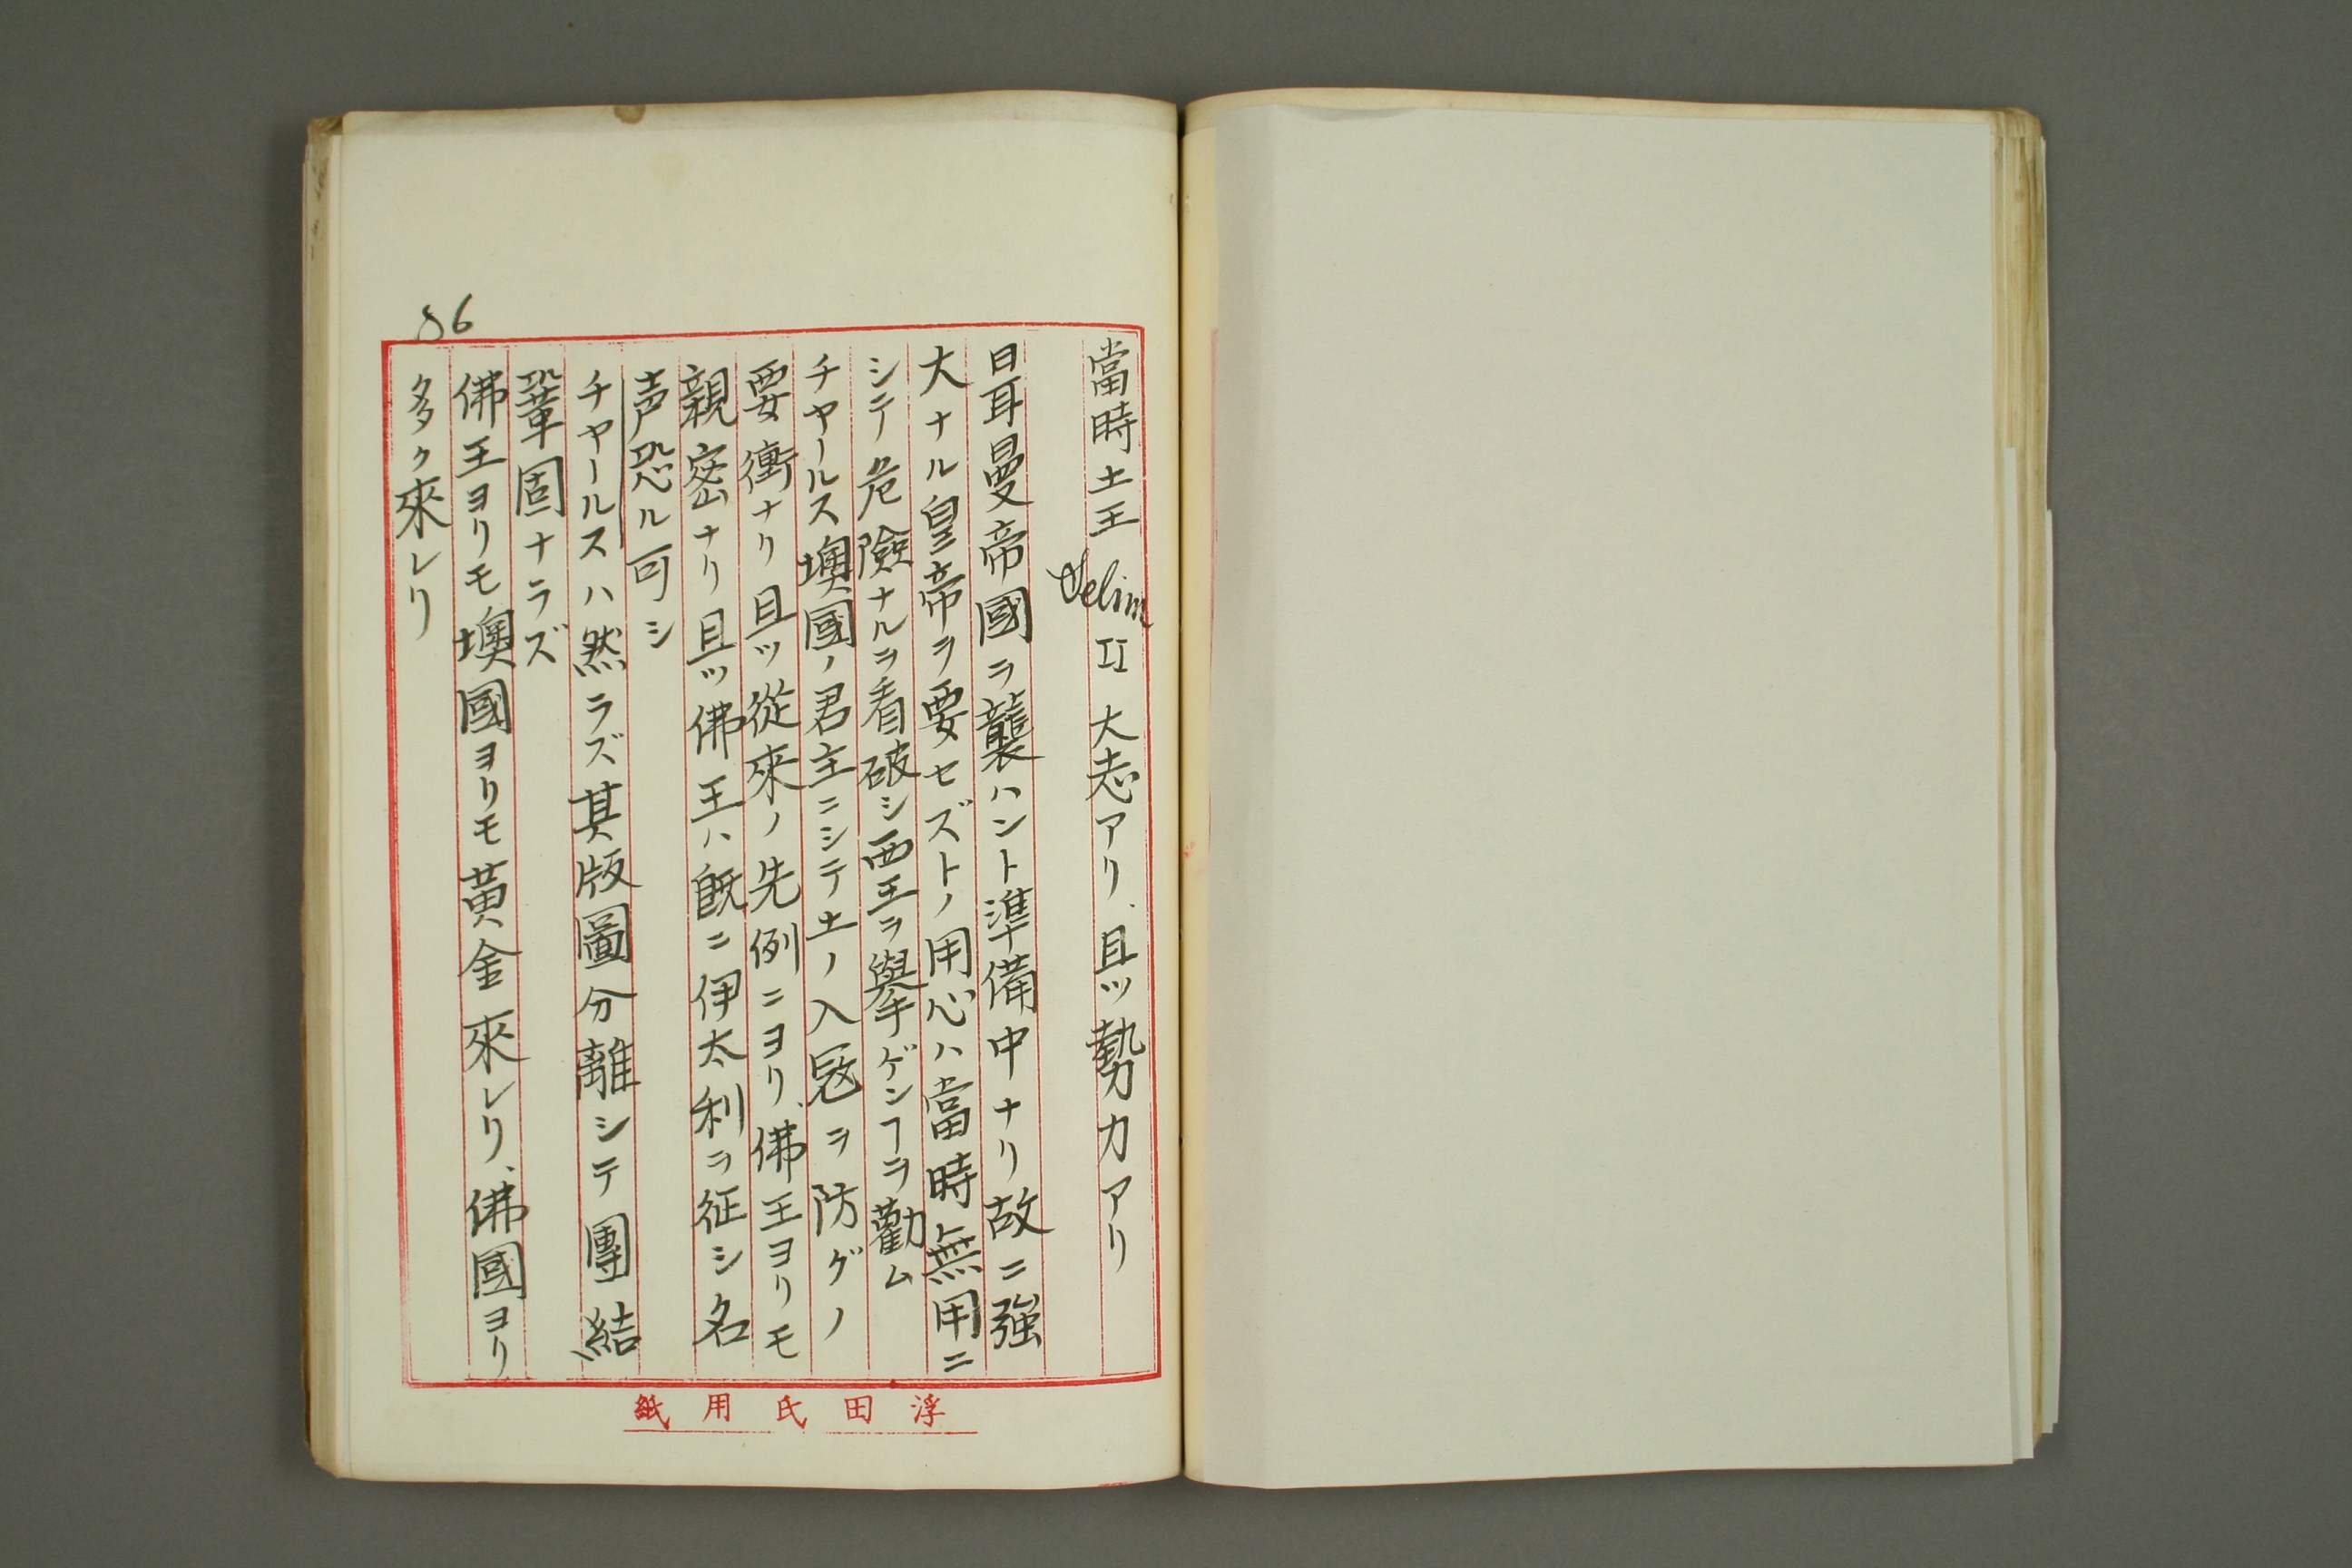 當時土王 Selim II 大志アリ、且ツ勢力アリ
日耳曼帝國ヲ襲ハント準備中ナリ故ニ強
大ナル皇帝ヲ要セズトノ用心ハ當時無用ニ
シテ危險ナルヲ看破シ西王ヲ擧ゲンヿヲ勸ム
チャールス墺國ノ君主ニシテ土ノ入寇ヲ防グノ
要衝ナリ且ツ從來ノ先例ニヨリ、佛王ヨリモ
親密ナリ且ツ佛王ハ既ニ伊太利ヲ征シ名
声恐ル可シ
チャールスハ然ラズ其版圖分離シテ團結
鞏固ナラズ
佛王ヨリモ墺國ヨリモ黄金來レリ、佛國ヨリ
多ク來レリ
56
浮田氏用紙